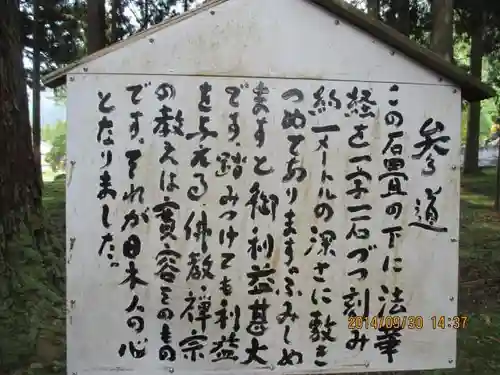 参る道
この石畳の下に法華
経を一字一石づつ刻み
約一メートルの深さに敷き
つめてあります。ふみしめ
ますと御利益甚大
です。踏みつけても利益
を与える、佛教、禅宗
の教えは寛容そのもの
です。それが日本人の心
となりました。
2014/09/30 14:37